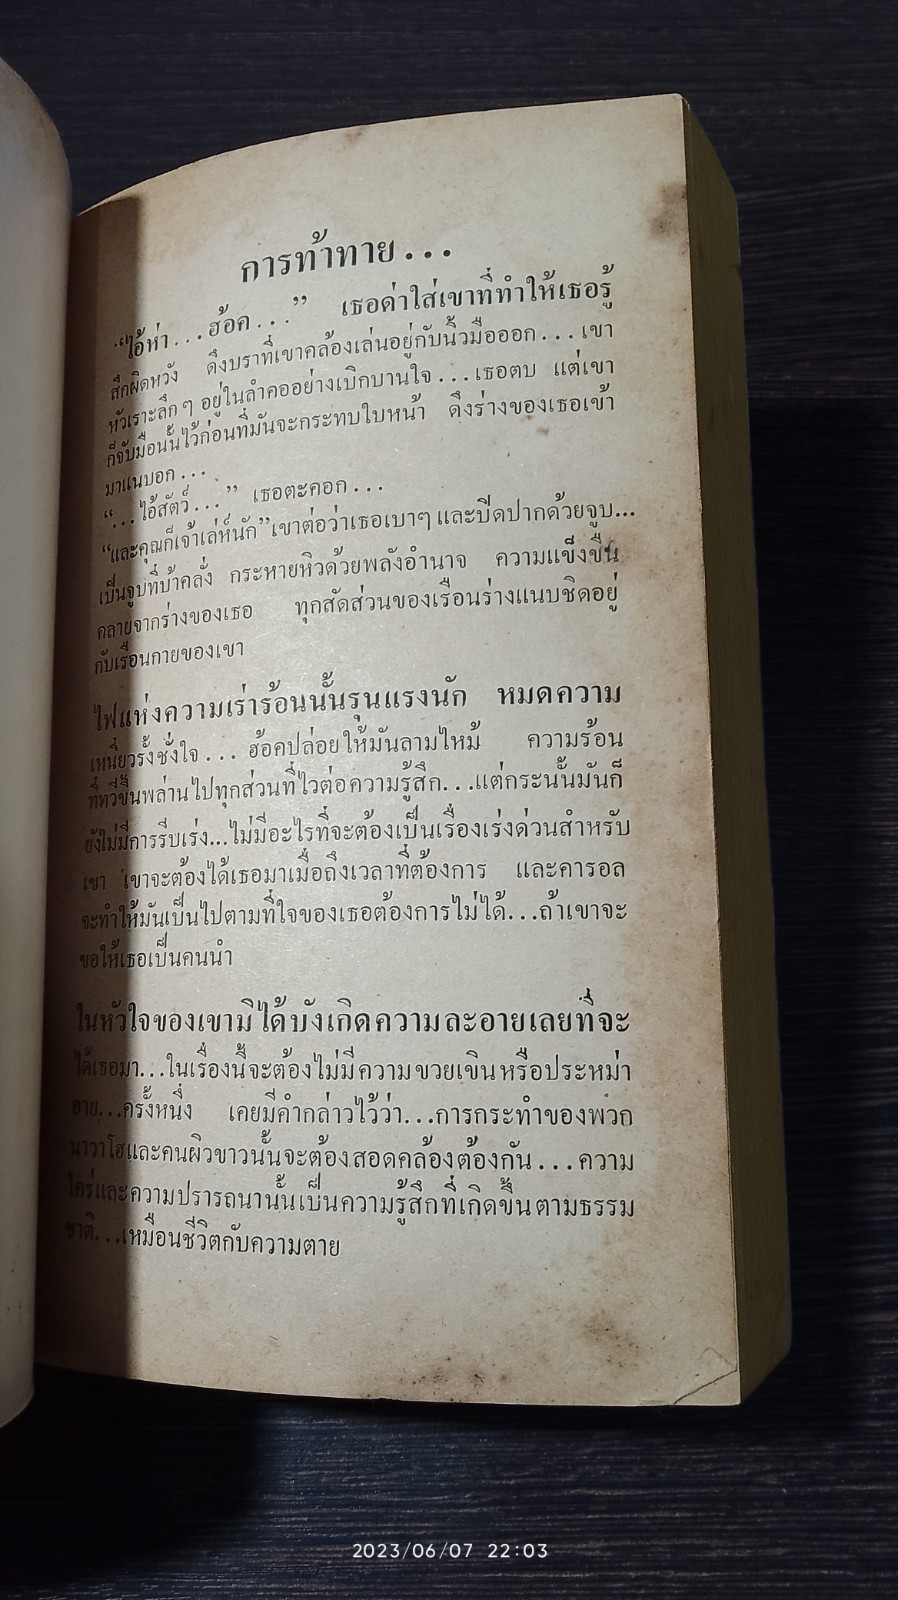 การท้าทาย...
“ไอ้ห่า...ฮ้อค...” เธอด่าใส่เขาที่ทำให้เธอรู้
สึกผิดหวัง ดึงบราที่เขาคล้องเล่นอยู่กับนิ้วมือออก...เขา
หัวเราะลึกๆ อยู่ในลำคออย่างเบิกบานใจ...เธอตบ แต่เขา
ก็จับมือนั้นไว้ก่อนที่มันจะกระทบใบหน้า ดึงร่างของเธอเข้า
มาแนบอก...
“...ไอ้สัตว์...” เธอตะคอก...
“และคุณก็เจ้าเล่ห์นัก”เขาต่อว่าเธอเบาๆ และปิดปากด้วยจูบ...
เป็นจูบที่บ้าคลั่ง กระหายหิวด้วยพลังอำนาจ ความแข็งขืน
คลายจากร่างของเธอ ทุกสัดส่วนของเรือนร่างแนบชิดอยู่
กับเรือนกายของเขา
ไฟแห่งความเร่าร้อนนั้นรุนแรงนัก หมดความ
เหนี่ยวรั้งชั่งใจ... ฮ้อคปล่อยให้มันลามไหม้ ความร้อน
ที่ทวีขึ้นพล่านไปทุกส่วนที่ไวต่อความรู้สึก...แต่กระนั้นมันก็
ยังไม่มีการรีบเร่ง...ไม่มีอะไรที่จะต้องเป็นเรื่องเร่งด่วนสำหรับ
เขา เขาจะต้องได้เธอมาเมื่อถึงเวลาที่ต้องการ และคารอล
จะทำให้มันเป็นไปตามที่ใจของเธอต้องการไม่ได้...ถ้าเขาจะ
ขอให้เธอเป็นคนนำ
ในหัวใจของเขามิได้บังเกิดความละอายเลยที่จะ
ได้เธอมา...ในเรื่องนี้จะต้องไม่มีความขวยเขินหรือประหม่า
อาย...ครั้งหนึ่ง เคยมีคำกล่าวไว้ว่า...การกระทำของพวก
นาวาโฮและคนผิวขาวนั้นจะต้องสอดคล้องต้องกัน...ความ
ใคร่และความปรารถนานั้นเป็นความรู้สึกที่เกิดขึ้นตามธรรม
ชาติ...เหมือนชีวิตกับความตาย
2023/06/07 22:03